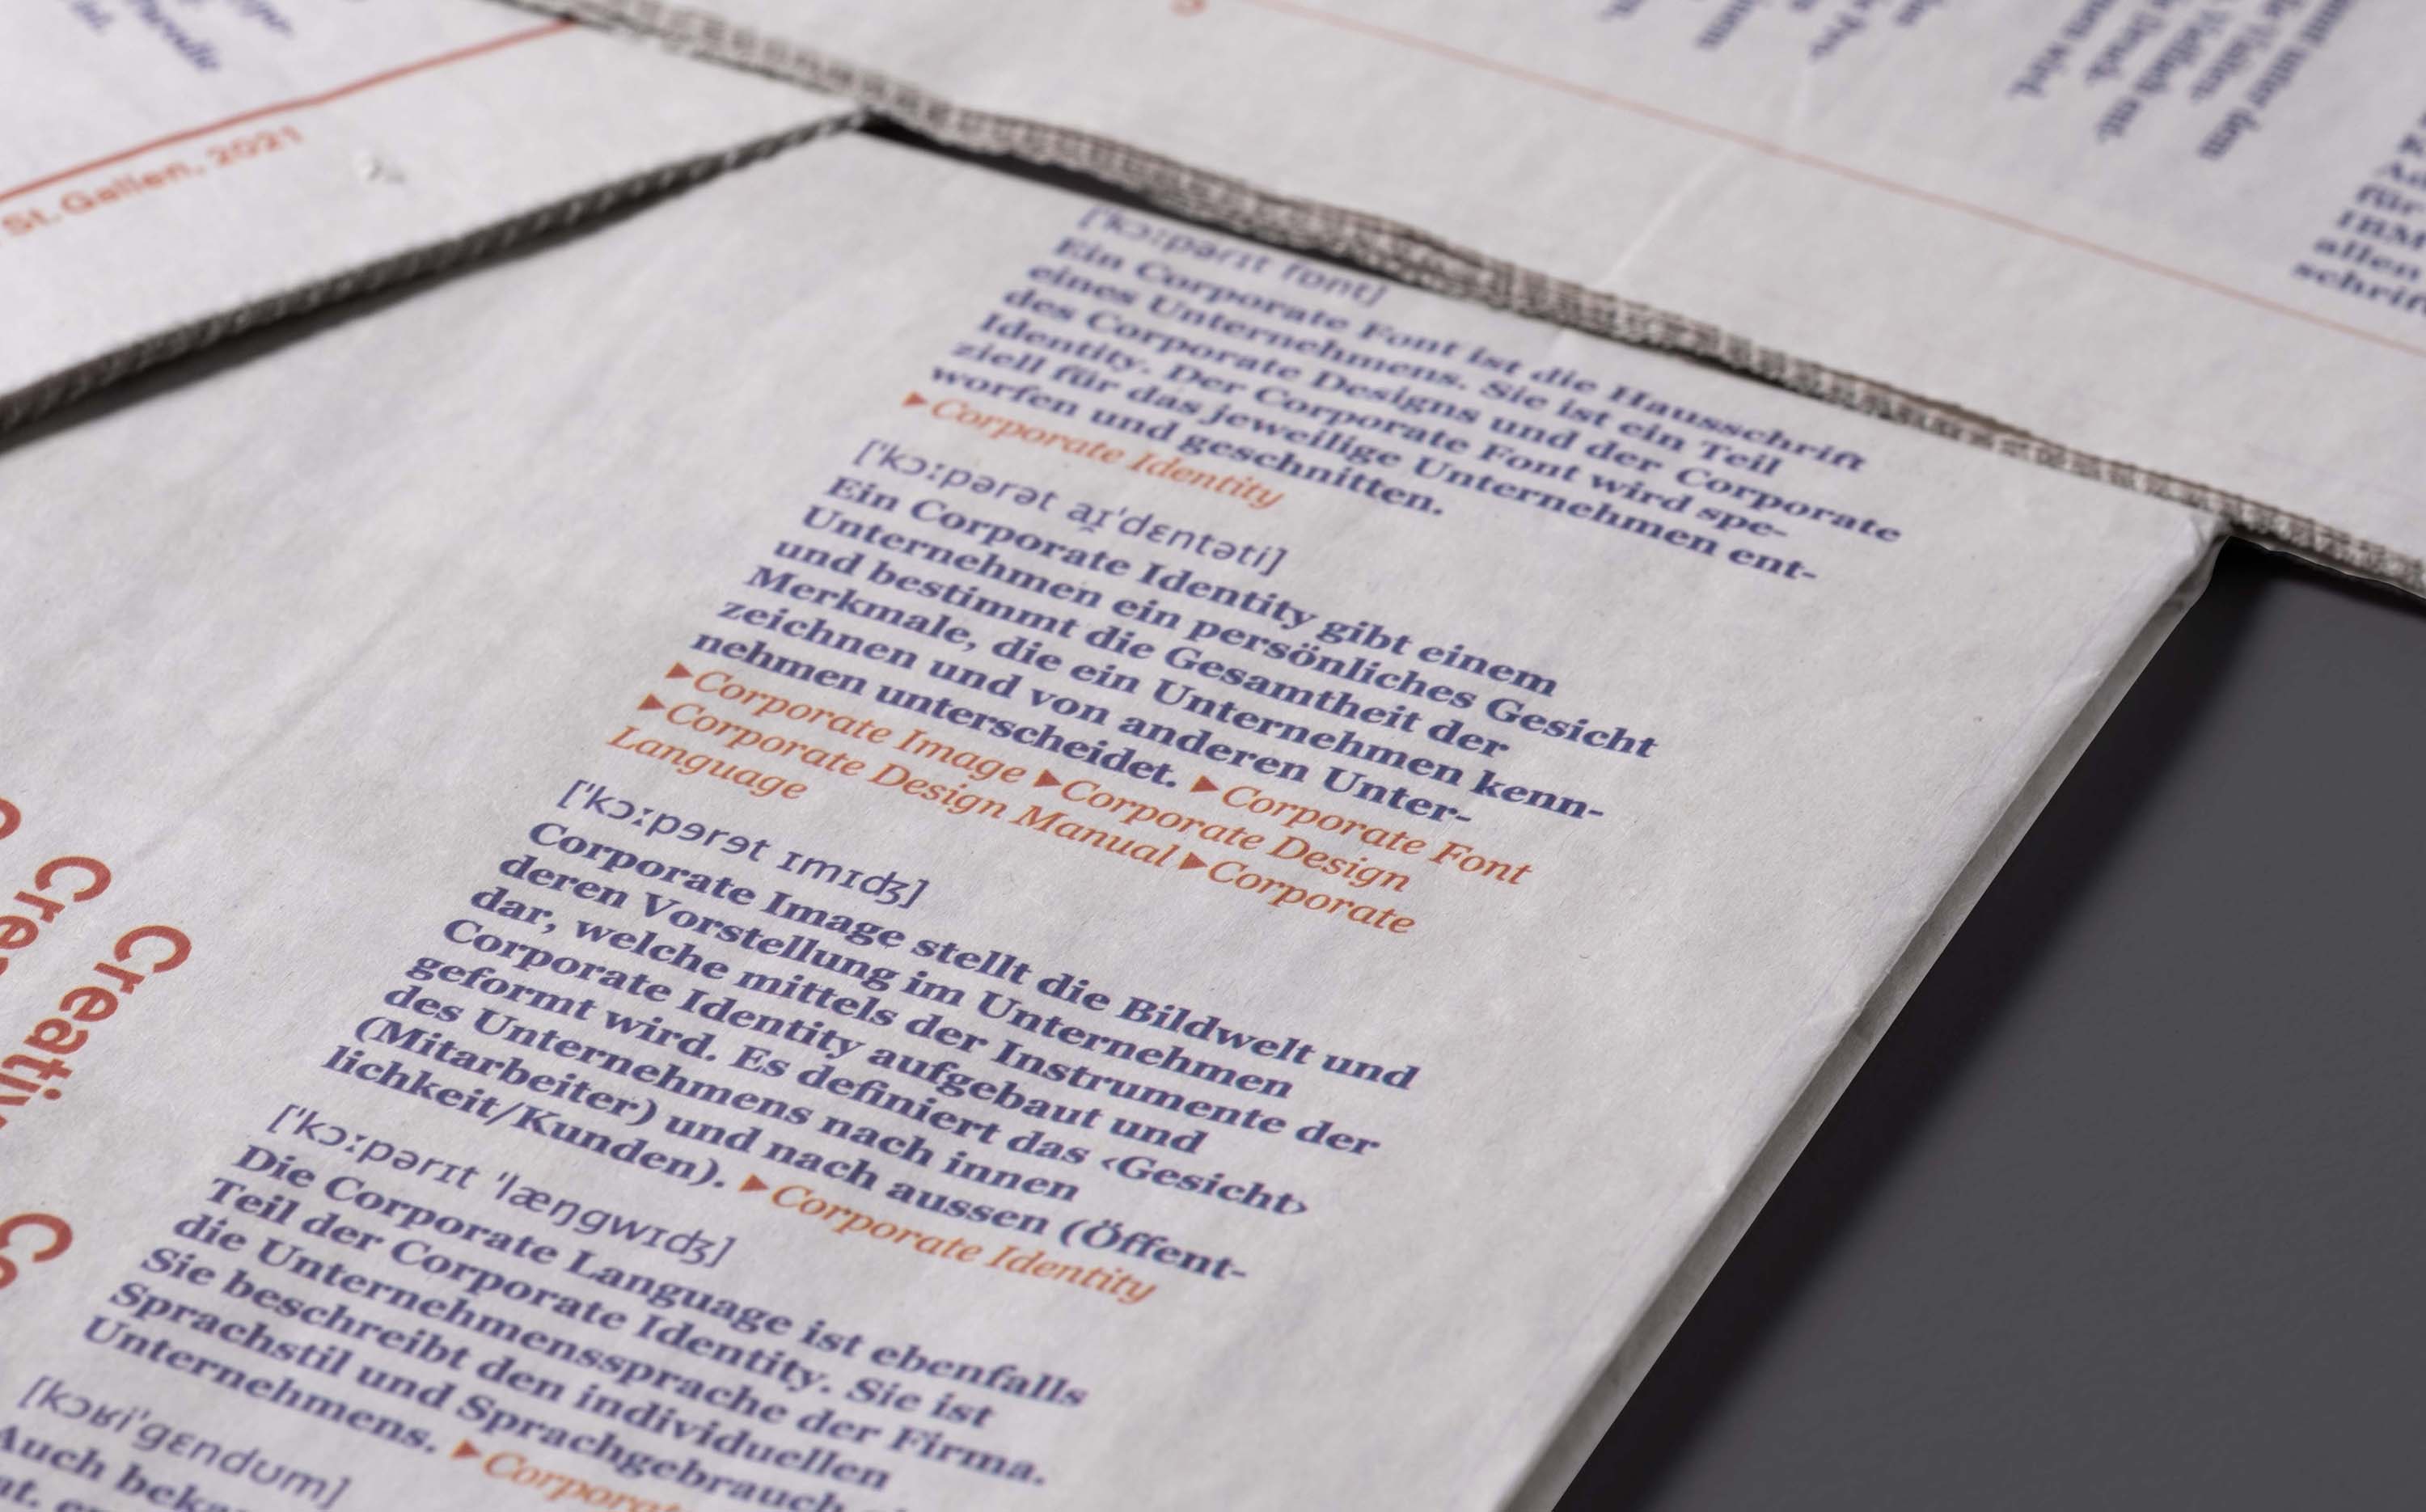 St. Gallen, 2021
['kɔːpərɪt fɒnt]
Ein Corporate Font ist die Hausschrift
eines Unternehmens. Sie ist ein Teil
des Corporate Designs und der Corporate
Identity. Der Corporate Font wird spe-
ziell für das jeweilige Unternehmen ent-
worfen und geschnitten.
▸Corporate Identity
['kɔːpərət aɪ̯'dɛntəti]
Ein Corporate Identity gibt einem
Unternehmen ein persönliches Gesicht
und bestimmt die Gesamtheit der
Merkmale, die ein Unternehmen kenn-
zeichnen und von anderen Unter-
nehmen unterscheidet. ▸Corporate Font
▸Corporate Image ▸Corporate Design
▸Corporate Design Manual ▸Corporate
Language
['kɔːpərət ɪmɪʤ]
Corporate Image stellt die Bildwelt und
deren Vorstellung im Unternehmen
dar, welche mittels der Instrumente der
Corporate Identity aufgebaut und
geformt wird. Es definiert das ‹Gesicht›
des Unternehmens nach innen
(Mitarbeiter) und nach aussen (Öffent-
lichkeit/Kunden). ▸Corporate Identity
['kɔːpərɪt 'læŋgwɪʤ]
Die Corporate Language ist ebenfalls
Teil der Corporate Identity. Sie ist
die Unternehmenssprache der Firma.
Sie beschreibt den individuellen
Sprachstil und Sprachgebrauch
Unternehmens. ▸Corporate
[kɔʁi'gɛndʊm]
Auch